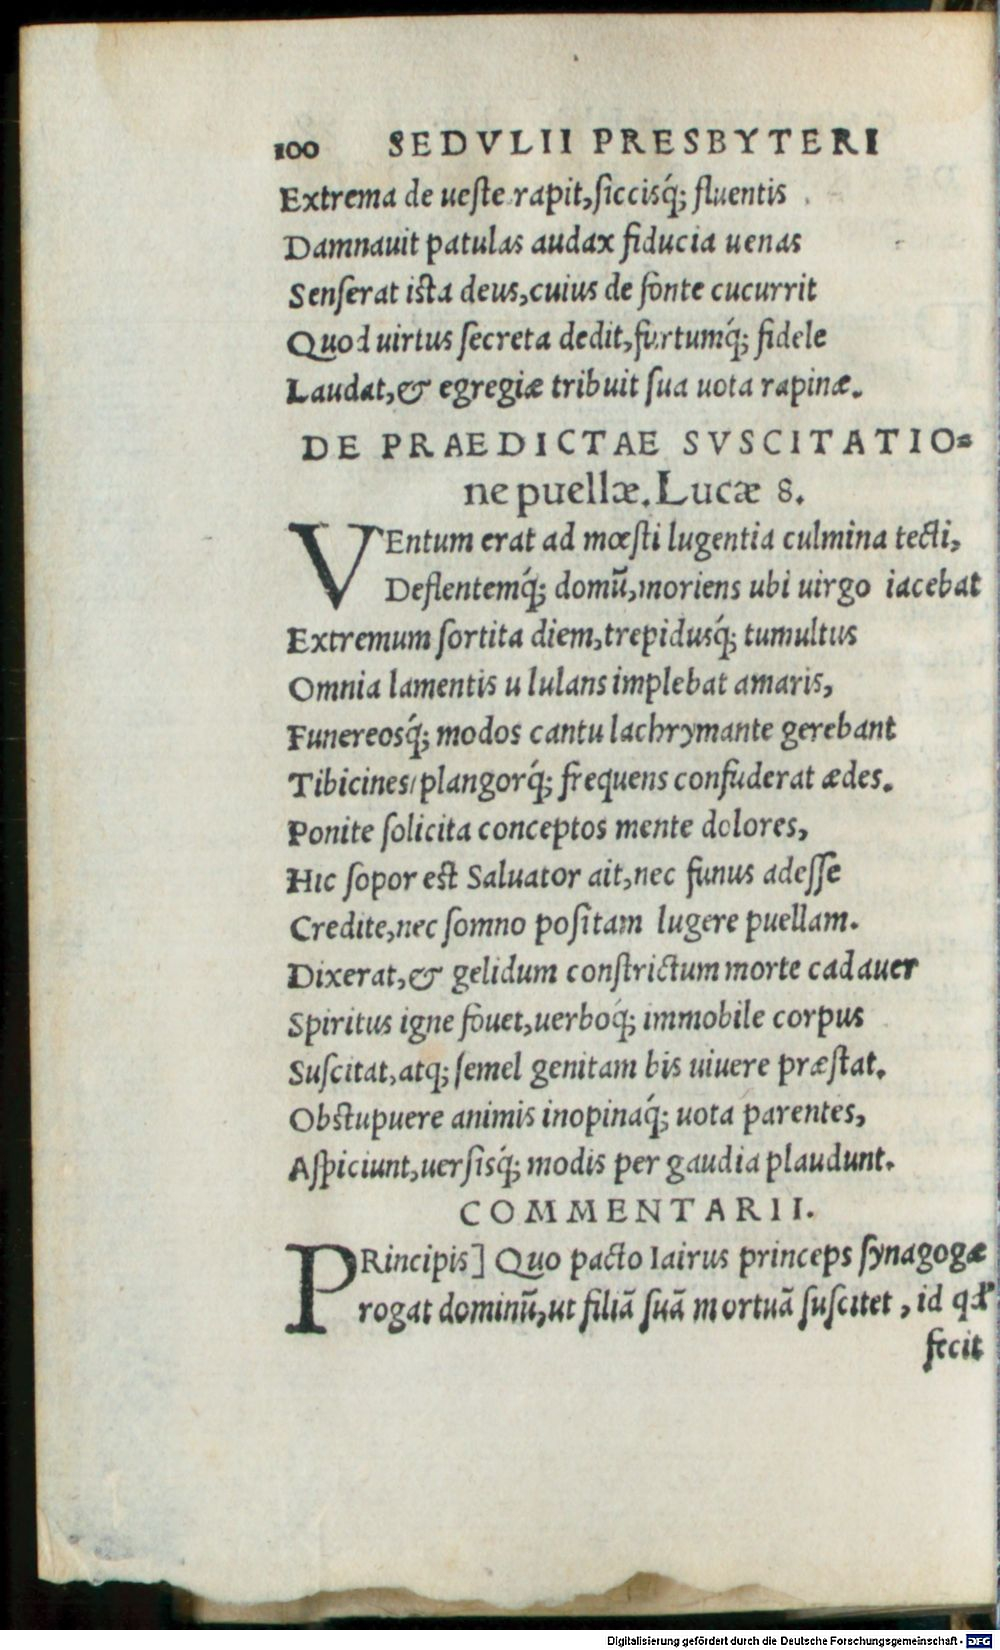 100 SEDVLII PRESBYTERI
Extrema de ueſte rapit,ſiccisq́; fluentis
Damnauit patulas audax fiducia uenas
Senſerat iſta deus,cuius de fonte cucurrit
Quod uirtus ſecreta dedit,furtumq́; fidele
Laudat,& egregiæ tribuit ſua uota rapinæ.
DE PRAEDICTAE SVSCITATIO=
ne puellæ. Lucæ 8.
VEntum erat ad mœſti lugentia culmina tecti,
Deflentemq́; domū,moriens ubi uirgo iacebat
Extremum ſortita diem,trepidusq́; tumultus
Omnia lamentis ululans implebat amaris,
Funereosq́; modos cantu lachrymante gerebant
Tibicines/plangorq́; frequens confuderat ædes.
Ponite ſolicita conceptos mente dolores,
Hic ſopor eſt Saluator ait,nec funus adeſſe
Credite,nec ſomno poſitam lugere puellam.
Dixerat,& gelidum conſtrictum morte cadauer
Spiritus igne fouet,uerboq́; immobile corpus
Suſcitat,atq; ſemel genitam bis uiuere præſtat.
Obſtupuere animis inopinaq́; uota parentes,
Aſpiciunt,uerſisq́; modis per gaudia plaudunt.
COMMENTARII.
PRincipis] Quo pacto Iairus princeps ſynagogæ
rogat dominū,ut filiā ſuā mortuā ſuſcitet , id qđ
fecit
Digitalisierung gefördert durch die Deutsche Forschungsgemeinschaft - DFG